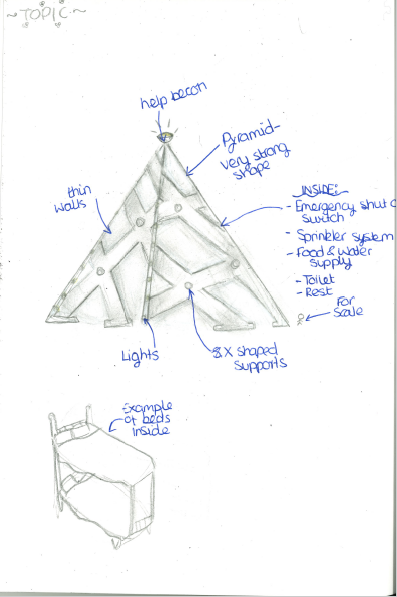 ~TOPIC~
help becon
Pyramid-
very strong
shape
thin
walls
INSIDE:
- Emergency shut o
switch
- Sprinkler system
- Food & Water
supply
- Toilet
- Rest
For
Scale
Lights
X shaped
supports
-Example
of beds
inside